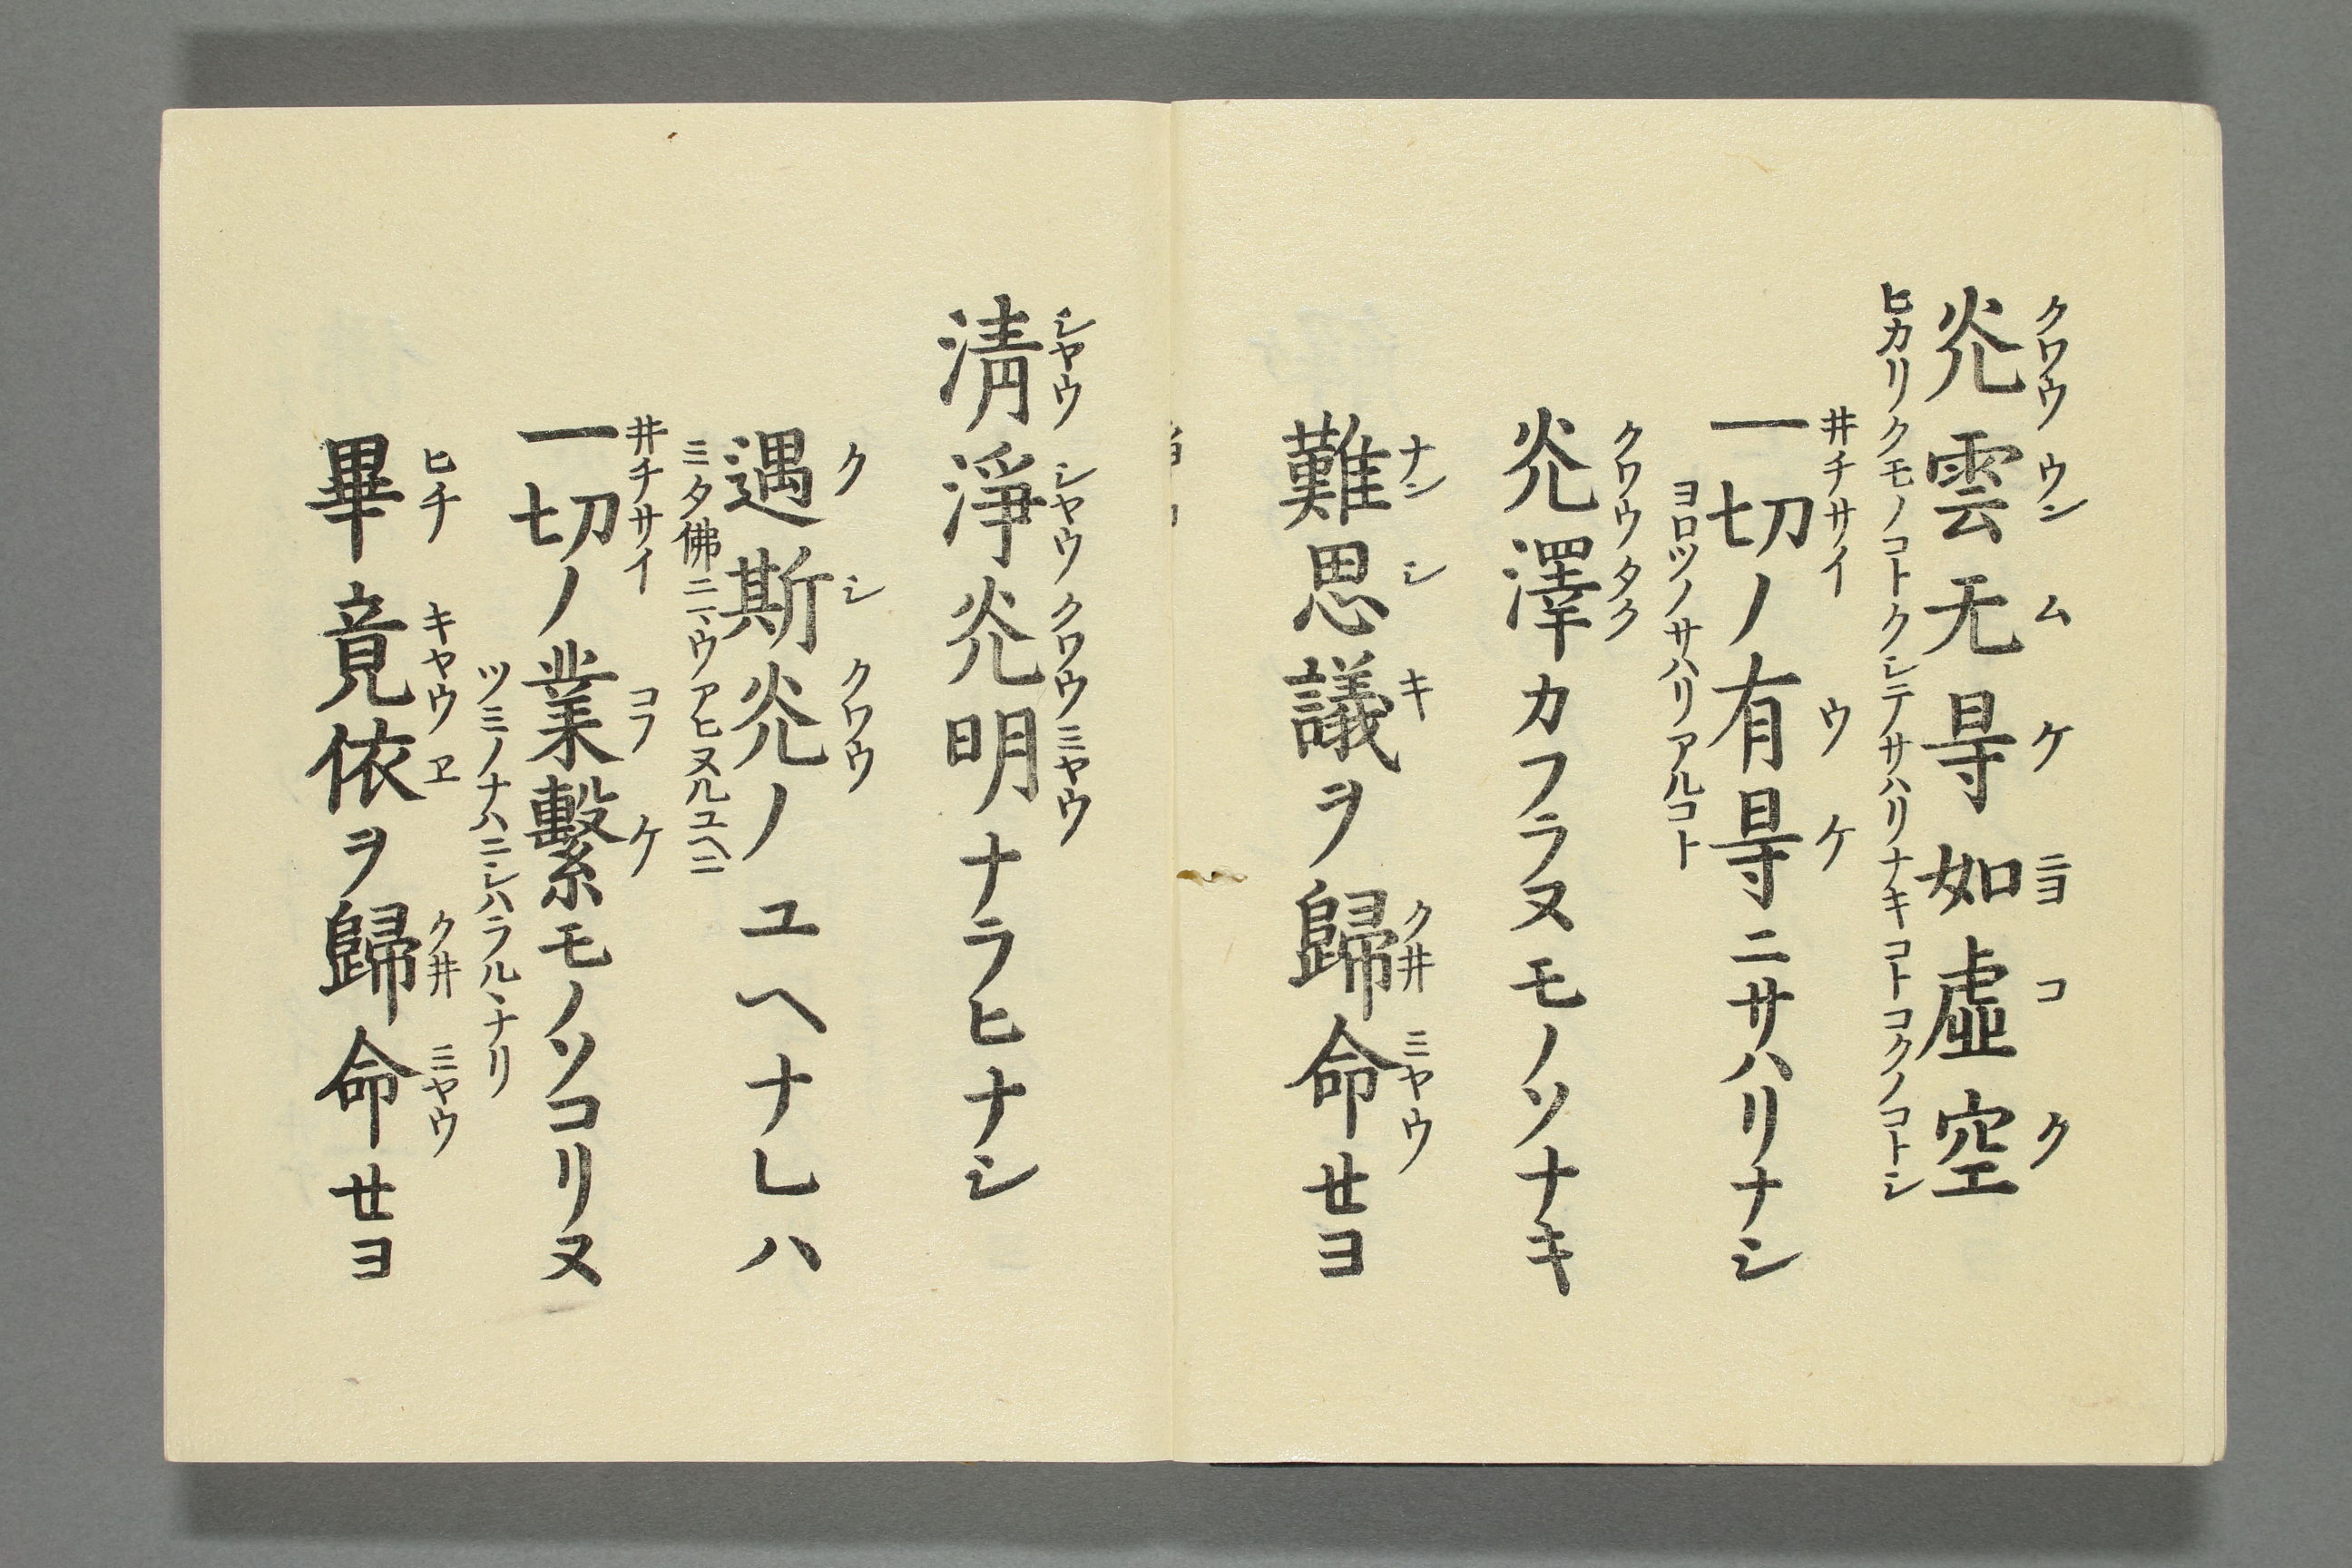 クワウ ウン ム ケ ニヨ コ ク
光雲无㝵如虛空
ヒカリクモノコトクシテサハリナキコトコクノコトシ
井チサイ ウ ケ
一切ノ有㝵ニサハリナシ
ヨロツノサハリアルコト
クワウタク
光澤カフラヌモノソナキ
ナン シ キ ク井 ミヤウ
難思議ヲ歸命セヨ
シヤウ シヤウ クワウ ミヤウ
淸淨光明ナラヒナシ
ク シ クワウ
遇斯光ノユヘナレハ
ミタ佛ニマウアヒヌルユヘニ
井チサイ コフ ケ
一切ノ業繫モノソコリヌ
ツミノナハニシハラルヽナリ
ヒチ キヤウ ヱ ク井 ミヤウ
畢竟依ヲ歸命セヨ